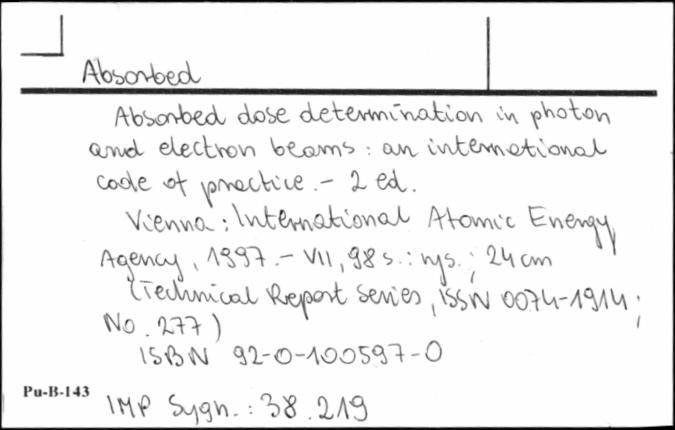 Absorbed
Absorbed dose determination in photon
and electron beams : an international
code of practice. - 2 ed.
Vienna : International Atomic Energy
Agency, 1997. - VII, 98 s. : rys. ; 24 cm
(Technical Report Series, ISSN 0074-1914 ;
No. 277)
ISBN 92-0-100597-0
Pu-B-143
IMP Sygn. : 38.219